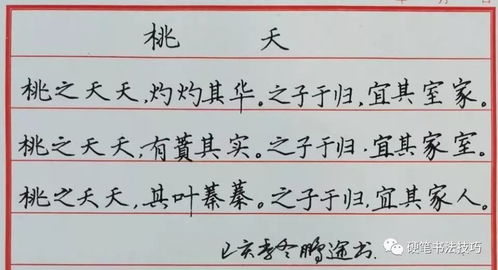 桃 夭
桃之夭夭,灼灼其华。之子于归,宜其室家。
桃之夭夭,有蕡其实。之子于归,宜其家室。
桃之夭夭,其叶蓁蓁。之子于归,宜其家人。
硬笔书法技巧